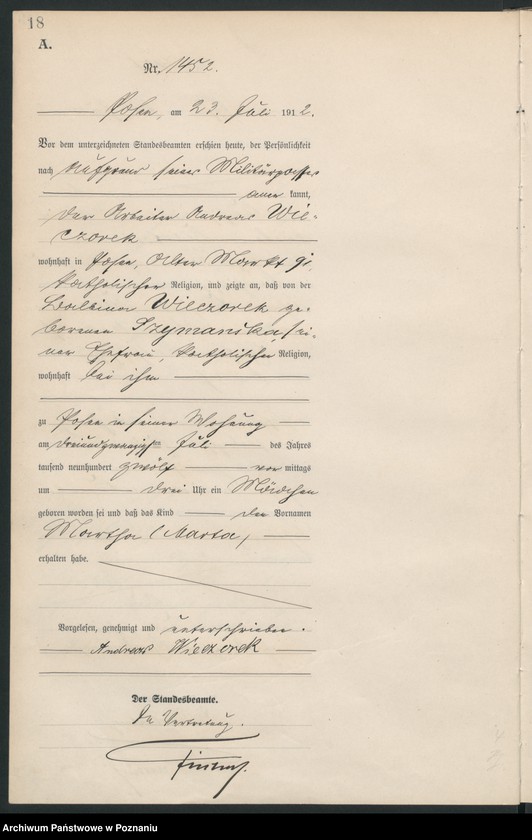 18
A.
Nr. 1452.
Posen, am 23. Juli 1912.
Vor dem unterzeichneten Standesbeamten erschien heute, der Persönlichkeit
nach auf Grund seines Militärpasses
aner kannt,
der Arbeiter Andreas Wie-
czorek
wohnhaft in Posen, Alter Markt 91,
katholischer Religion, und zeigte an, daß von der
Balbina Wieczorek ge-
borenen Szymanska, sei-
ner Ehefrau, katholischer Religion,
wohnhaft bei ihm
zu Posen in seiner Wohnung
am dreiundzwanzigsten Juli des Jahres
tausend neunhundert zwölf vor mittags
um drei Uhr ein Mädchen
geboren worden sei und daß das Kind den Vornamen
Martha (Marta)
erhalten habe.
Vorgelesen, genehmigt und unterschrieben.
Andreas Wieczorek
Der Standesbeamte.
In Vertretung.
Archiwum Państwowe w Poznaniu